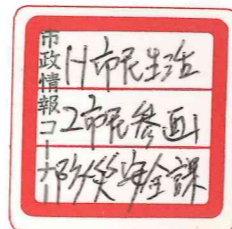 市政情報コーナー
11市民生活
2市民参画
防災安全課